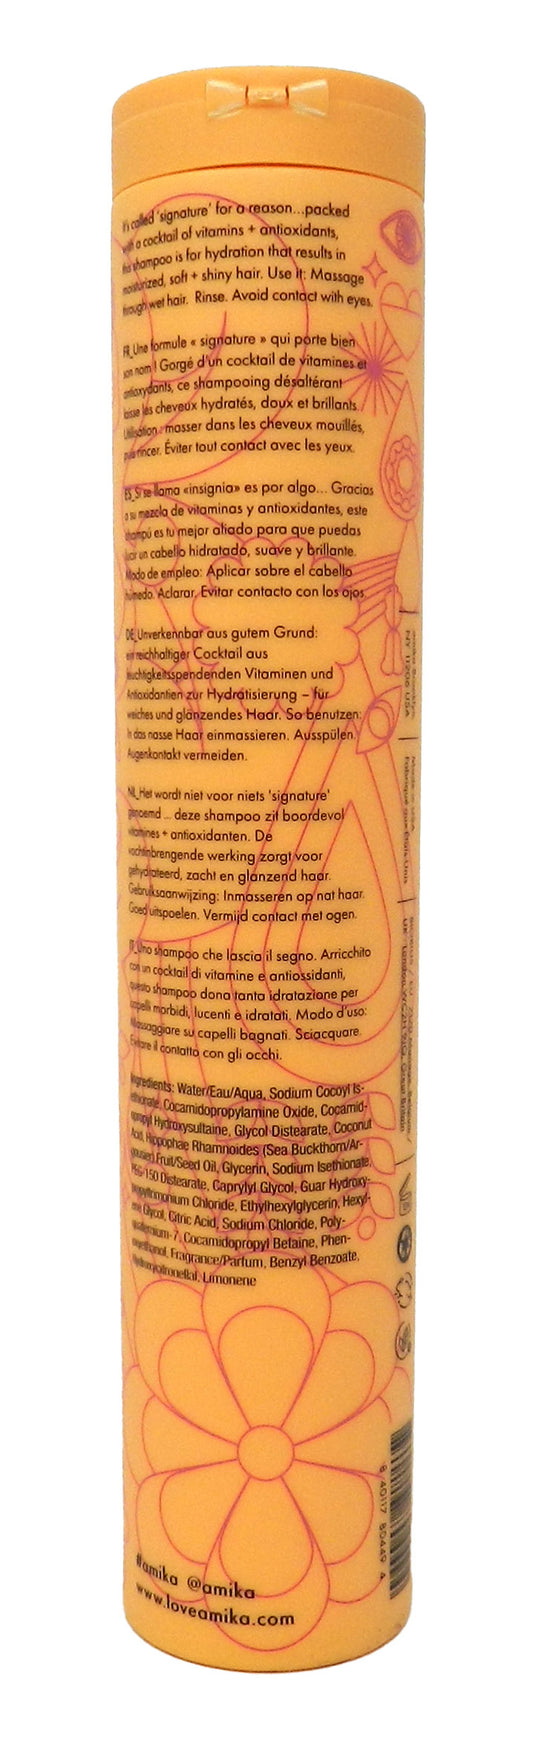 It's called 'signature' for a reason...packed
with a cocktail of vitamins + antioxidants,
this shampoo is for hydration that results in
moisturized, soft + shiny hair. Use It: Massage
through wet hair. Rinse. Avoid contact with eyes.
FR_Une formule « signature » qui porte bien
son nom ! Gorgé d'un cocktail de vitamines et
antioxydants, ce shampooing désaltérant
laisse les cheveux hydratés, doux et brillants.
Utilisation : masser dans les cheveux mouillés,
puis rincer. Éviter tout contact avec les yeux.
ES_Si se llama «insignia» es por algo... Gracias
a su mezcla de vitaminas y antioxidantes, este
champú es tu mejor aliado para que puedas
lucir un cabello hidratado, suave y brillante.
Modo de empleo: Aplicar sobre el cabello
húmedo. Aclarar. Evitar contacto con los ojos.
DE_Unverkennbar aus gutem Grund:
ein reichhaltiger Cocktail aus
feuchtigkeitsspendenden Vitaminen und
Antioxidantien zur Hydratisierung – für
weiches und glänzendes Haar. So benutzen:
In das nasse Haar einmassieren. Ausspülen.
Augenkontakt vermeiden.
NL_Het wordt niet voor niets 'signature'
genoemd ... deze shampoo zit boordevol
vitamines + antioxidanten. De
vochtinbrengende werking zorgt voor
gehydrateerd, zacht en glanzend haar.
Gebruiksaanwijzing: Inmasseren op nat haar.
Goed uitspoelen. Vermijd contact met ogen.
IT_Uno shampoo che lascia il segno. Arricchito
con un cocktail di vitamine e antiossidanti,
questo shampoo dona tanta idratazione per
capelli morbidi, lucenti e idratati. Modo d'uso:
Massaggiare su capelli bagnati. Sciacquare.
Evitare il contatto con gli occhi.
Ingredients: Water/Eau/Aqua, Sodium Cocoyl Is-
ethionate, Cocamidopropylamine Oxide, Cocamid-
opropyl Hydroxysultaine, Glycol Distearate, Coconut
Acid, Hippophae Rhamnoides (Sea Buckthorn/Ar-
gousier) Fruit/Seed Oil, Glycerin, Sodium Isethionate,
PEG-150 Distearate, Caprylyl Glycol, Guar Hydroxy-
propyltrimonium Chloride, Ethylhexylglycerin, Hexyl-
ene Glycol, Citric Acid, Sodium Chloride, Poly-
quaternium-7, Cocamidopropyl Betaine, Phen-
oxyethanol, Fragrance/Parfum, Benzyl Benzoate,
Hydroxycitronellal, Limonene
#amika @amika
www.loveamika.com
NY 11206 USA
Made in USA
Fabriqué aux États-Unis
UK: London, WC2H 9JQ, Great Britain
8 40117 80449 4